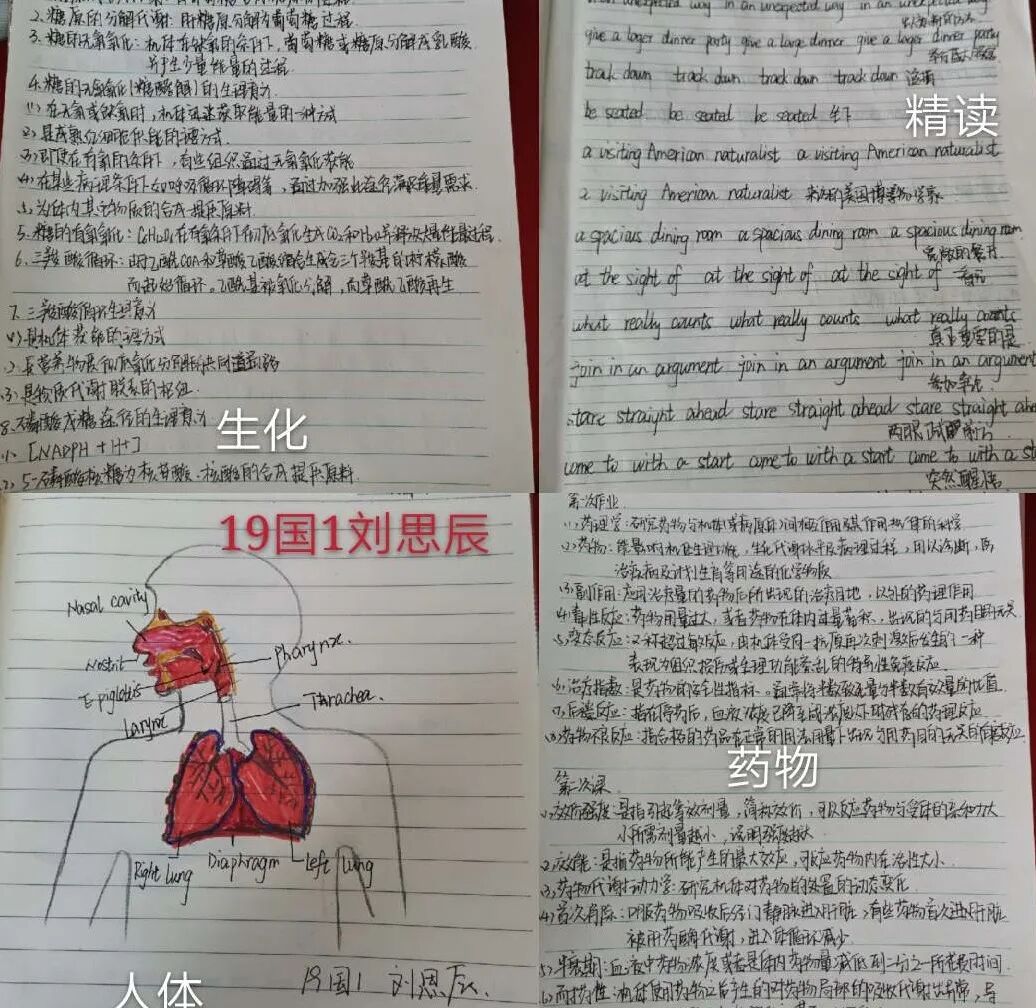 2. 糖原的分解代谢: 肝糖原分解为葡萄糖过程.
3. 糖的无氧氧化: 机体在缺氧的条件下, 葡萄糖或糖原分解成乳酸.
并产生少量能量的过程.
4. 糖的无氧氧化(糖酵解)的生理意义.
(1) 在无氧或缺氧时, 机体迅速获取能量的一种方式
(2) 是成熟红细胞供能的主要方式.
(3) 即使在有氧的条件下, 有些组织通过无氧氧化获能
(4) 在某些病理条件下如呼吸循环障碍等, 通过加强此途径满足能量需求.
(5) 为体内其它物质的合成提供原料
5. 糖的有氧氧化: C6H12O6在有氧条件下彻底氧化生成CO2和H2O并释放大量能量过程.
6. 三羧酸循环: 由乙酰COA和草酰乙酸缩合生成含三个羧基的柠檬酸
而起始循环。乙酰基被氧化分解, 而草酰乙酸再生
7. 三羧酸循环生理意义
(1) 是机体获能的主要方式
(2) 是营养物质彻底氧化分解的共同通路
(3) 是物质代谢联系的枢纽.
8. 磷酸戊糖途径的生理意义
(1) [NADPH + H+]
(2) 5-磷酸核糖为核苷酸、核酸的合成提供原料.
生化
in an unexpected way in an unexpected way
give a lager dinner party give a large dinner give a lager dinner party
track down track down track down track down 追捕
be seated be seated be seated 坐下
精读
a visiting American naturalist a visiting American naturalist
a visiting American naturalist 来访的美国博物学家
a spacious dining room a spacious dining room a spacious dining room
宽敞的餐厅
at the sight of at the sight of at the sight of 看见
what really counts what really counts what really counts
真正重要的是
join in an argument join in an argument join in an argument
参加争论
stare straight ahead stare straight ahead stare straight ahe
两眼直盯前方
come to with a start come to with a start come to with a st
突然醒悟
19国1刘思辰
Nasal cavity
Nostril
Epiglotis
Larynx
Pharynx
Tharachea
Right lung
Diaphragm
Left lung
19国1 刘思辰.
人体
第一次作业
(1) 药理学: 研究药物与机体或病原体之间相互作用及作用规律的科学
(2) 药物: 能影响机体生理功能, 生化代谢水平及病理过程, 用以诊断, 防
治疾病及计划生育等用途的化学物质
(3) 副作用: 应用治疗量的药物后所出现的治疗目地以外的药理作用
(4) 毒性反应: 药物用量过大, 或者药物在体内过量蓄积, 出现的与用药目的无关
(5) 变态反应: 又称超过敏反应, 由机体受同一抗原再次刺激后发生的一种
表现为组织损伤或生理功能紊乱的特异性免疫反应.
(6) 治疗指数: 是药物的安全性指标。通常将半数致死量与半数有效量的比值.
(7) 后遗反应: 指在停药后, 血液浓度已降至阈浓度以下时残存的药理反应
(8) 药物不良反应: 指合格的药品在正常的用法用量下出现与用药目的无关的有害反应
药物
第二次课
(1) 效价强度: 是指引起等效剂量, 简称效价, 可以反应药物与受体的亲和力大
小所需剂量越小, 说明强度越大
(2) 效能: 是指药物所能产生的最大效应, 可反应药物内在活性大小.
(3) 药物代谢动力学: 研究机体对药物的处置的动态变化
(4) 首次消除: 口服药物吸收后经门静脉进入肝脏, 有些药物首次进入肝脏
被肝药酶代谢, 进入体循环减少.
(5) 半衰期: 血液中药物浓度或者是体内药物量减低到二分之一所花费时间.